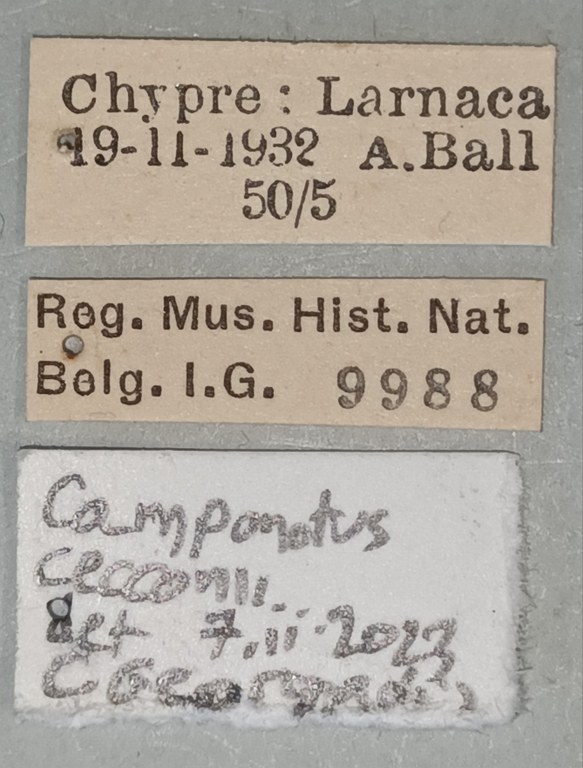 Chypre: Larnaca
19-II-1932 A.Ball
50/5
Reg. Mus. Hist. Nat.
Belg. I.G. 9988
Camponotus
cecconii
det 7.ii.2023
C Georgiadis